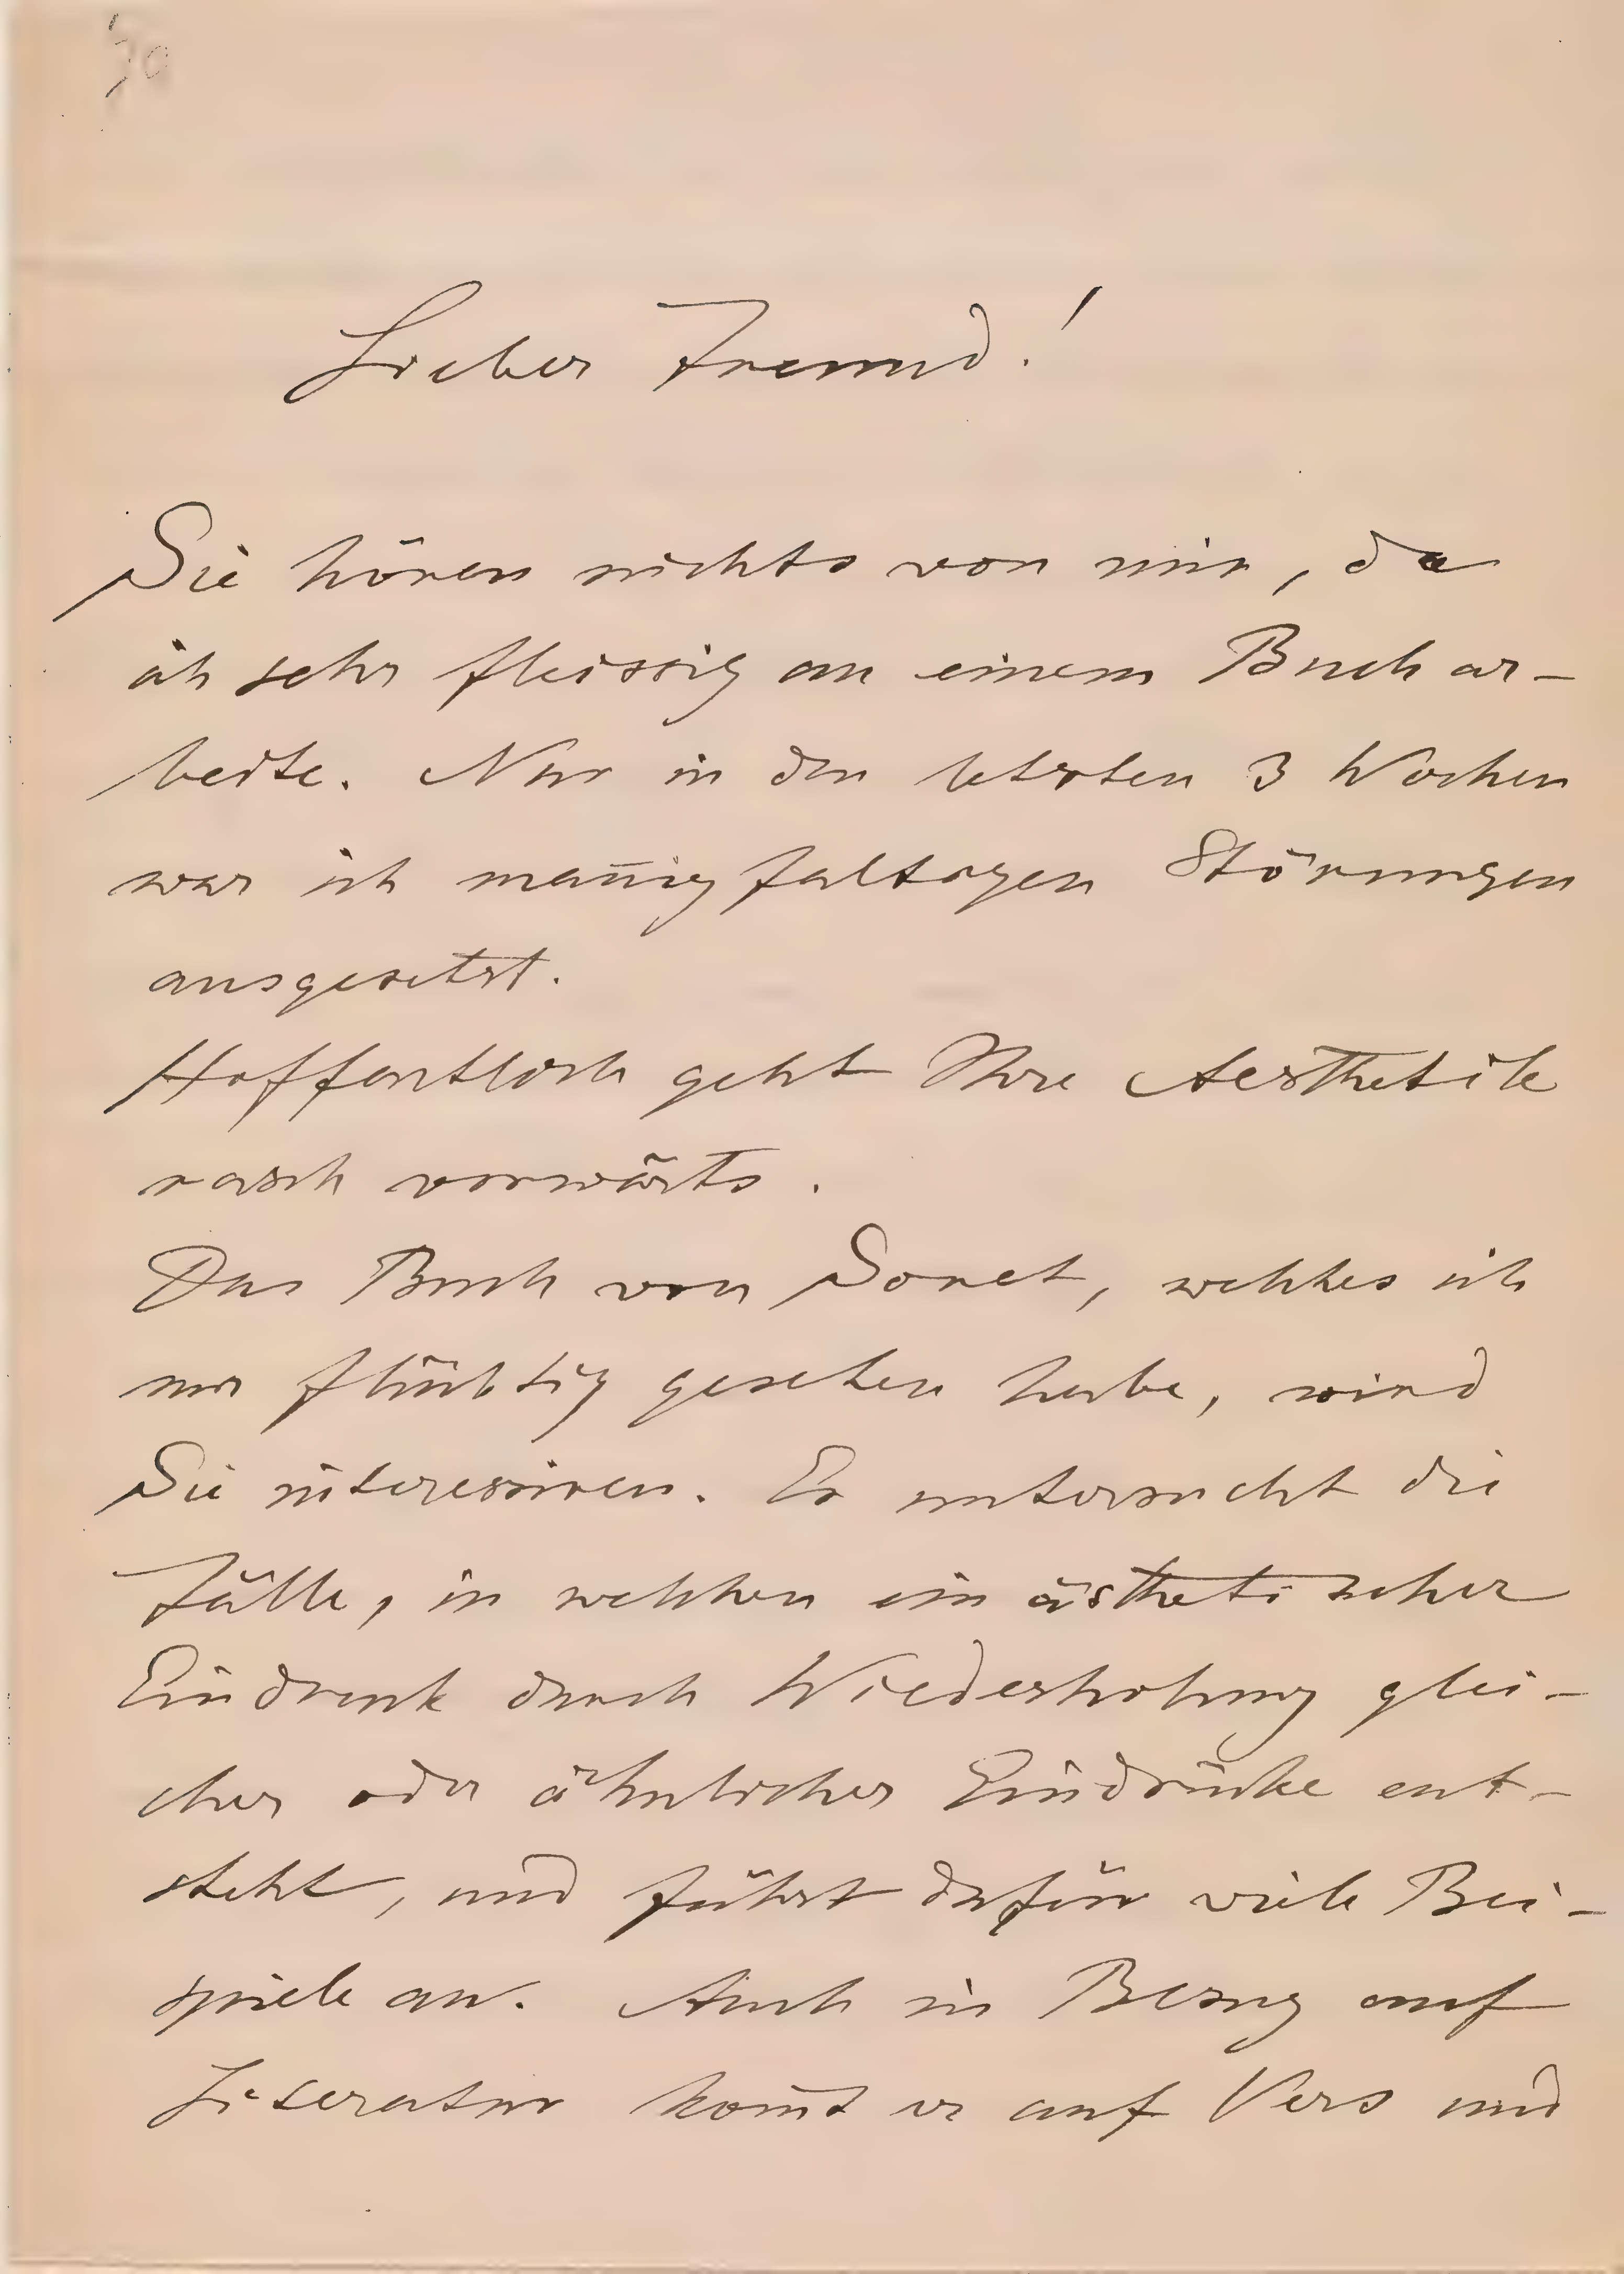 70
Lieber Freund!
Sie hören nichts von mir, da
ich sehr fleissig an einem Buch ar-
beite. Nur in den letzten 3 Wochen
war ich man̄igfaltigen Störungen
ausgesetzt.
Hoffentlich geht Ihre Aesthetik
rasch vorwärts.
Das Buch von Soret, welches ich
nur flüchtig gesehen habe, wird
Sie interessiren. Er untersucht die
Fälle, in welchen ein ästhetischer
Eindruck durch Wiederholung glei-
cher oder ähnlicher Eindrücke ent-
steht, und führt dafür viele Bei-
spiele an. Auch in Bezug auf
Literatur kom̄t er auf Vers und